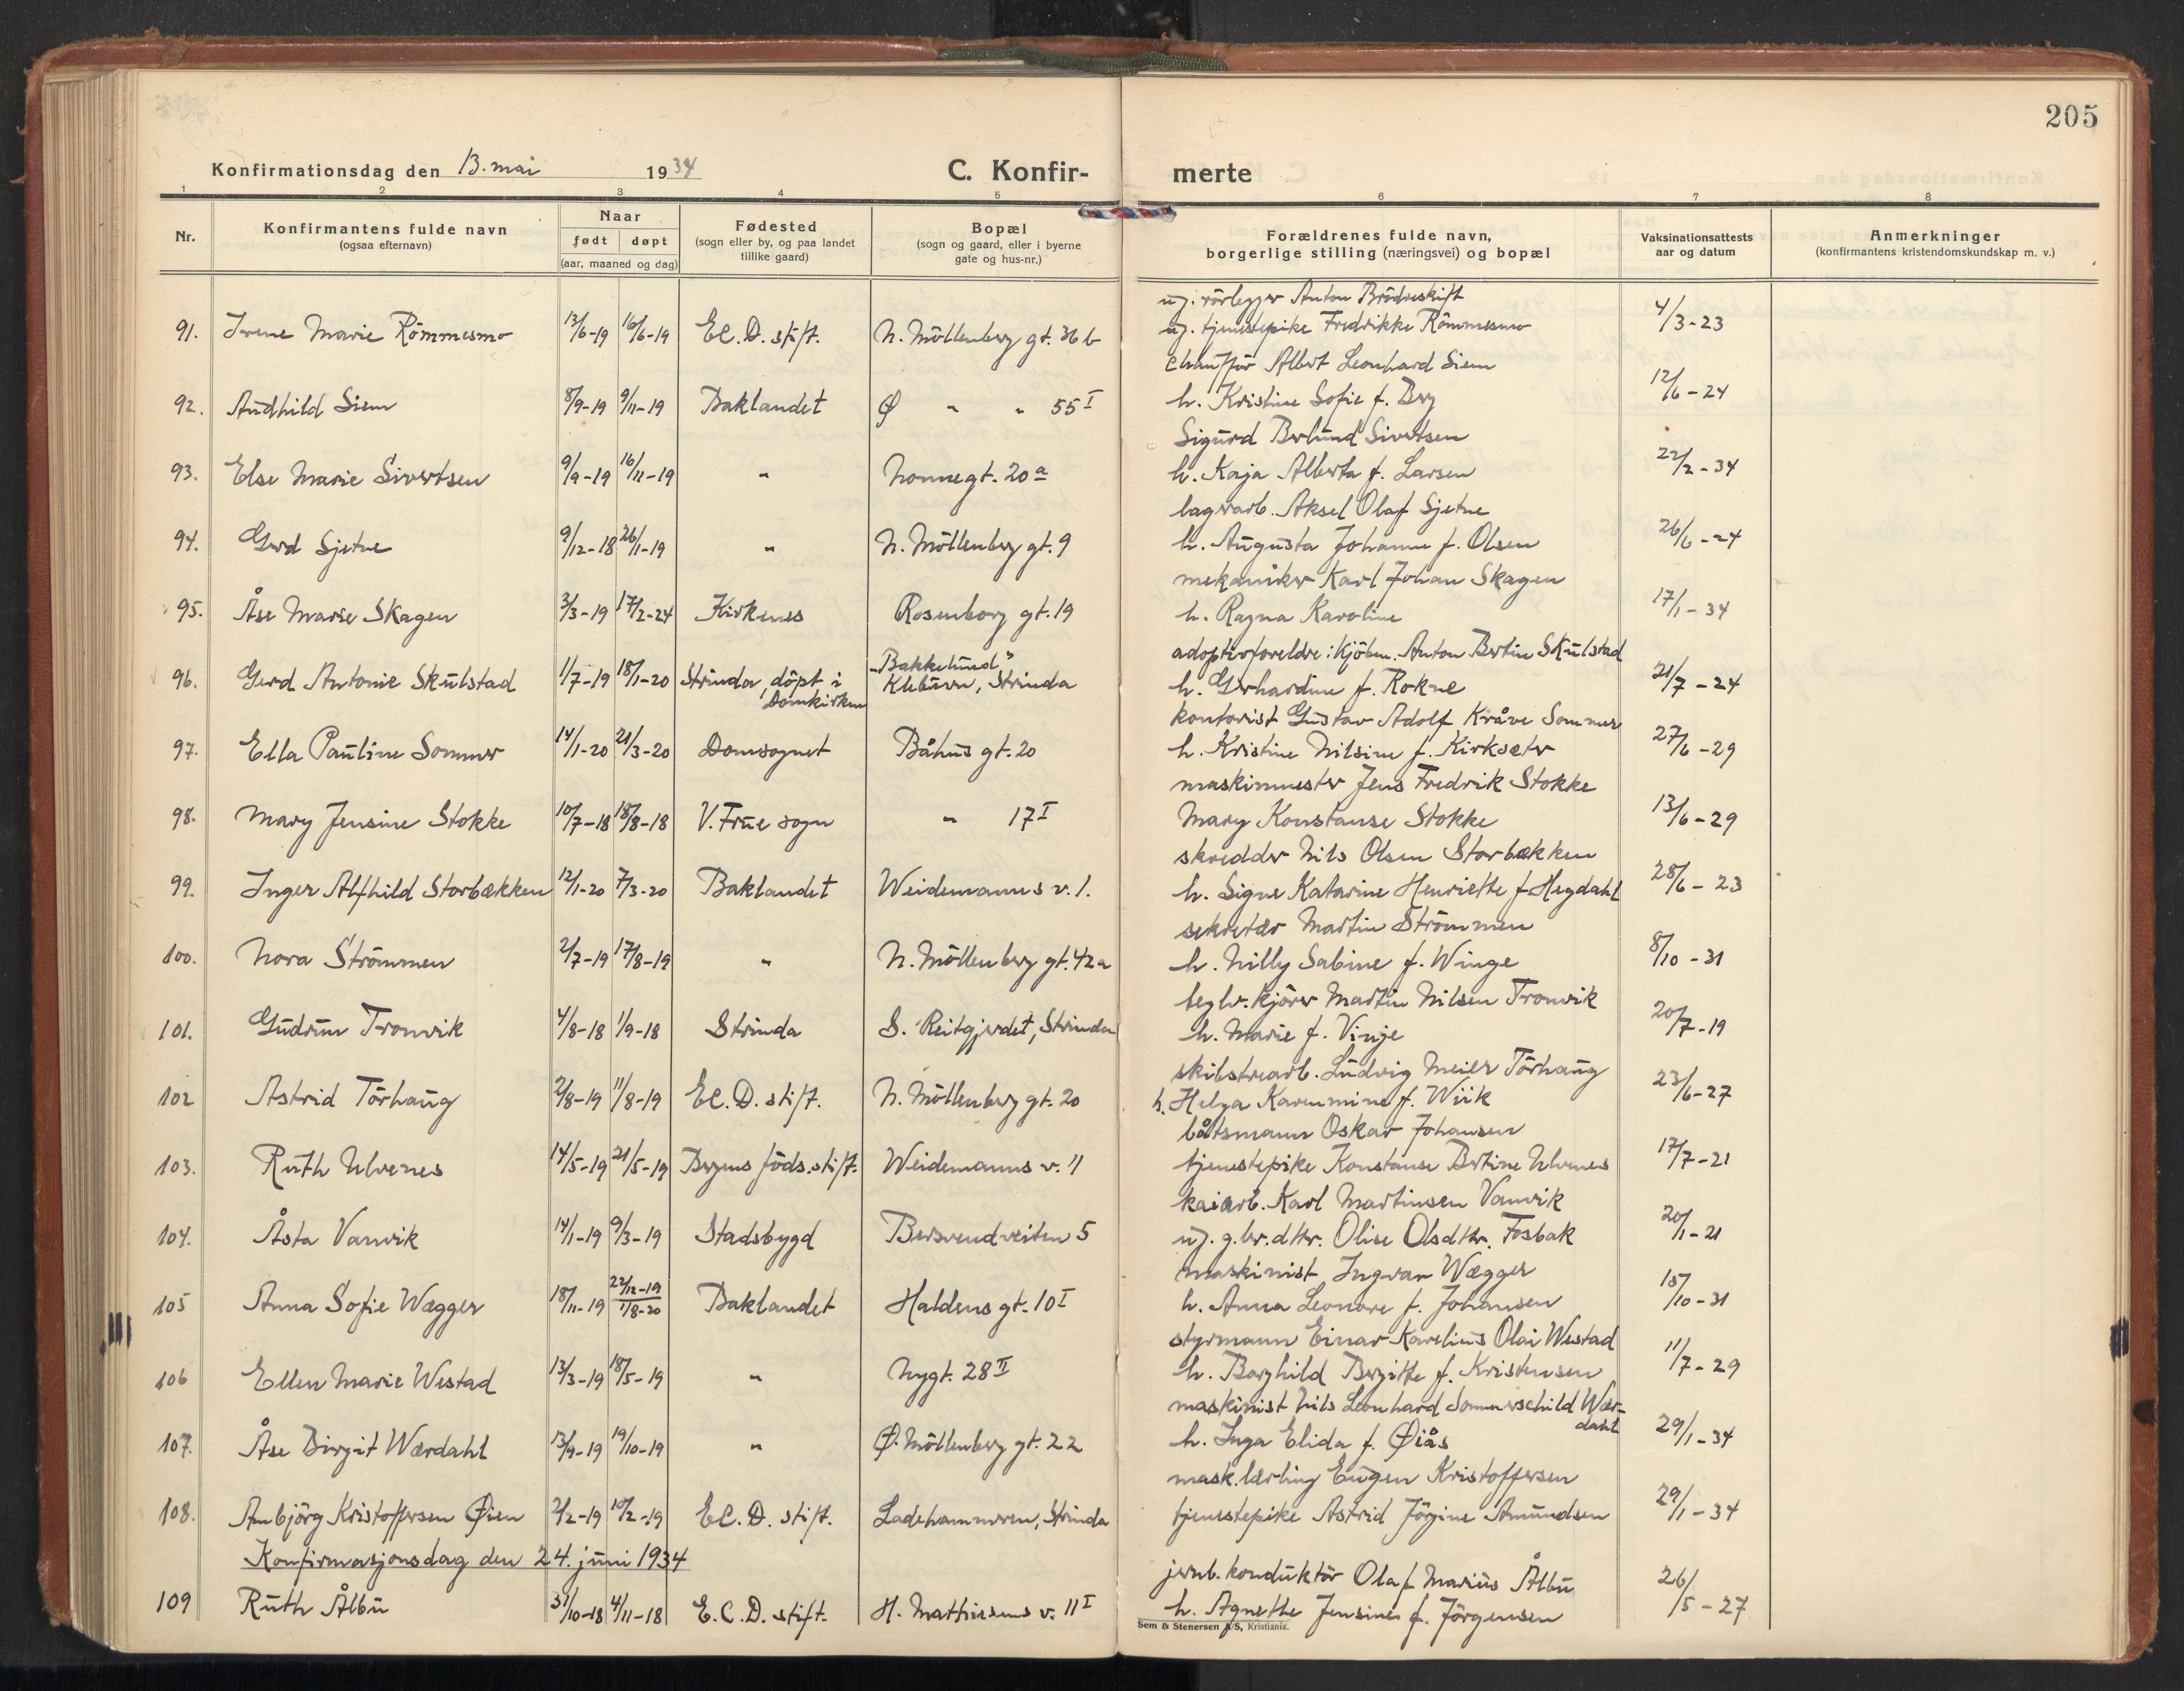 205
Konfirmationsdag den 13. mai 1934 C. Konfir-merte
1 2 3 4 5 6 7 8
Nr.
Konfirmantens fulde navn
(ogsaa efternavn)
Naar
født døpt
(aar, maaned og dag)
Fødested
(sogn eller by, og paa landet
tillike gaard)
Bopæl
(sogn og gaard, eller i byerne
gate og hus-nr.)
Forældrenes fulde navn,
borgerlige stilling (næringsvei) og bopæl
Vaksinationsattests
aar og datum
Anmerkninger
(konfirmantens kristendomskundskap m. v.)
ug. rörlegger Anton Brödreskift
91. Irene Marie Römmesmo 13/6-19 16/6-19 E.C.D. stift. N. Möllenberg gt. 36 b ug. tjenestepike Fredrikke Römmesmo 4/3-23
chauffør Albert Leonhard Siem
92. Audhild Siem 8/9-19 9/11-19 Baklandet Ø " " 55 I h. Kristine Sofie f. Berg 12/6-24
Sigurd Berlund Sivertsen
93. Else Marie Sivertsen 9/9-19 16/11-19 " Nonnegt. 20 a h. Kaja Alberta f. Larsen 22/2-34
lagerarb. Aksel Olaf Sjetne
94. Gerd Sjetne 9/12-18 26/1-19 " N. Möllenberg gt. 9 h. Augusta Johanne f. Olsen 26/6-24
mekaniker Karl Johan Skagen
95. Åse Marie Skagen 3/3-19 17/2-24 Kirkenes Rosenborg gt. 19 h. Ragna Karoline 17/1-34
adoptivforeldre: kjöbm. Anton Bertin Skulstad
96. Gerd Antonie Skulstad 1/7-19 18/1-20 Strinda, döpt i Domkirken "Bakkelund" Klebuvn, Strinda h. Gerhardine f. Rokne 21/7-24
kontorist Gustav Adolf Kråve Sommer
97. Ella Pauline Sommer 14/1-20 21/3-20 Domsognet Båhus gt. 20 h. Kristine Nilsine f. Kirksæter 27/6-29
maskinmester Jens Fredrik Stokke
98. Mary Jensine Stokke 10/7-18 18/8-18 V. Frue sogn " 17 I Mary Konstanse Stokke 13/6-29
skredder Nils Olsen Storbækken
99. Inger Alfhild Storbækken 12/1-20 7/3-20 Baklandet Weidemanns v. 1. h. Signe Katarine Henriette f. Hegdahl 28/6-23
sekretær Martin Strömmen
100. Nora Strömmen 2/7-19 17/8-19 " N. Möllenberg gt. 42 a h. Nilly Sabine f. Winge 8/10-31
teglv. kjörer Martin Nilsen Tronvik
101. Gudrun Tronvik 4/8-18 1/9-18 Strinda S. Reitgjerdet, Strinda h. Marie f. Vinje 20/7-19
skibstrearb. Ludvig Meier Törhaug
102 Astrid Törhaug 2/8-19 11/8-19 E.C.D. stift. N. Möllenberg gt. 20 h. Helga Karenmine f. Wiik 23/6-27
båtsmann Oskar Johansen
103. Ruth Ulvenes 14/5-19 21/5-19 Bergens föds. stift. Weidemanns v. 11 tjenestepike Konstanse Bertine Ulvenes 17/7-21
kaiarb. Karl Martinsen Vanvik
104. Åsta Vanvik 14/1-19 9/3-19 Stadsbygd Bersvendveiten 5 ug. g.br.dttr. Olise Olsdttr. Fosbak 20/1-21
maskinist Ingvar Wægger
105 Anna Sofie Wægger 18/11-19 22/12-19 1/8-20 Baklandet Haldens gt. 10 I h. Anna Leonore f. Johansen 15/10-31
styrmann Einar Karelius Olai Westad
106 Ellen Marie Westad 13/3-19 18/5-19 " Nygt. 28 II h. Borghild Bergitte f. Kristensen 11/7-29
maskinist Nils Leonhard Sommerschild Wær-
dahl
107. Åse Birgit Wærdahl 13/9-19 19/10-19 " Ø. Möllenberg gt. 22 h. Inga Elida f. Øiås 29/1-34
mask. lærling Eugen Kristoffersen
108. Anbjörg Kristoffersen Øien 2/2-19 10/2-19 E.C.D. stift. Ladehammeren, Strinda tjenestepike Astrid Jörgine Amundsen 29/1-34
Konfirmasjonsdag den 24. juni 1934
jernb. konduktör Olaf Marius Ålbu
109 Ruth Ålbu 31/10-18 4/11-18 E.C.D. stift. H. Mathiesens v. 11 I h. Agnethe Jensine f. Jörgensen 26/5-27
Sem & Stenersen A/S, Kristiania.